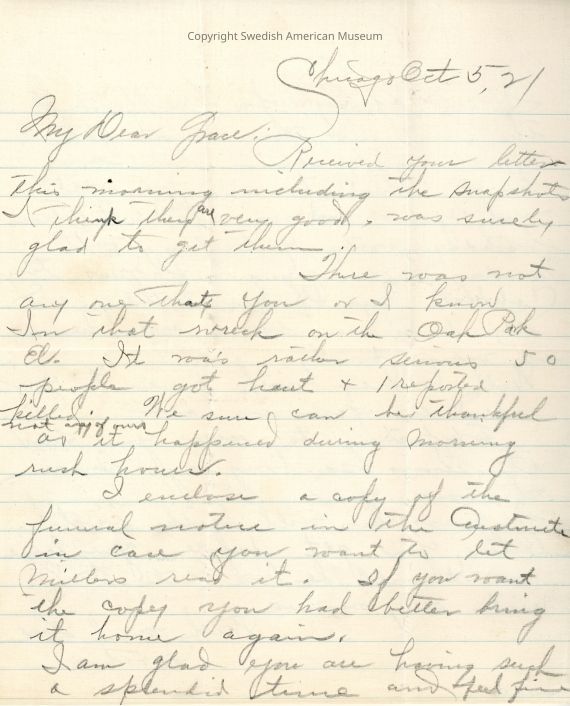 Copyright Swedish American Museum
Chicago Oct 5, 21
My Dear Grace:
Received your letter
this morning including the snapshots
I think they are very good, was surely
glad to get them.
There was not
any one that you or I know
In that wreck on the Oak Park
El. It was rather serious 50
people got heart + 1 reported
killed. We sure can be thankful
not any of ours
as it happened during morning
rush hours.
I enclose a copy of the
funeral notice in the
in case you want to let
Millers read it. If you want
the copy you had better bring
it home again.
I am glad you are having such
a splendid time and feel fine